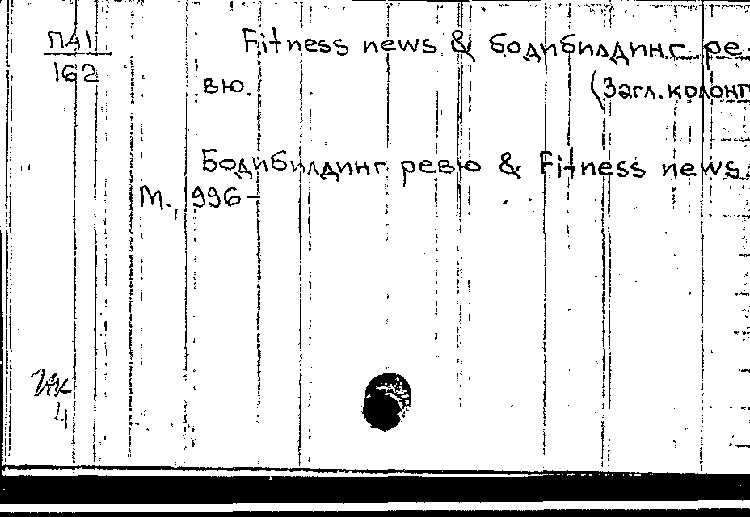 П41
162
Fitness news & бодибилдинг ре-
вю.
(Загл. колонт
Бодибилдинг ревю & Fitness news.
М., 996-
4